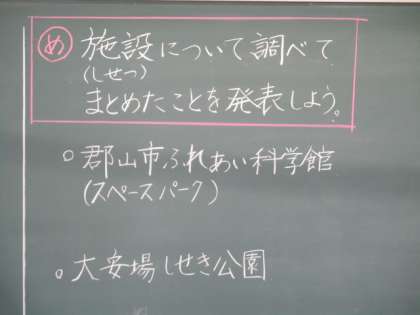 め 施設について調べて
(しせつ)
まとめたことを発表しよう。
○ 郡山市ふれあい科学館
(スペースパーク)
○ 大安場しせき公園